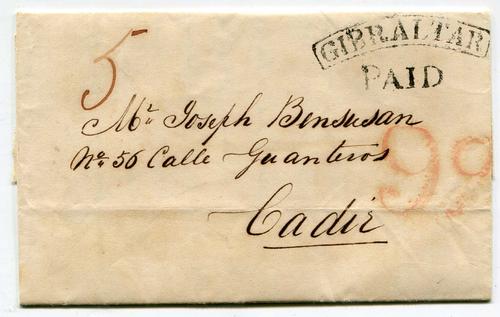 5
GIBRALTAR
PAID
Mr. Joseph Bensusan
No. 56 Calle Guanteros
9
Cadiz